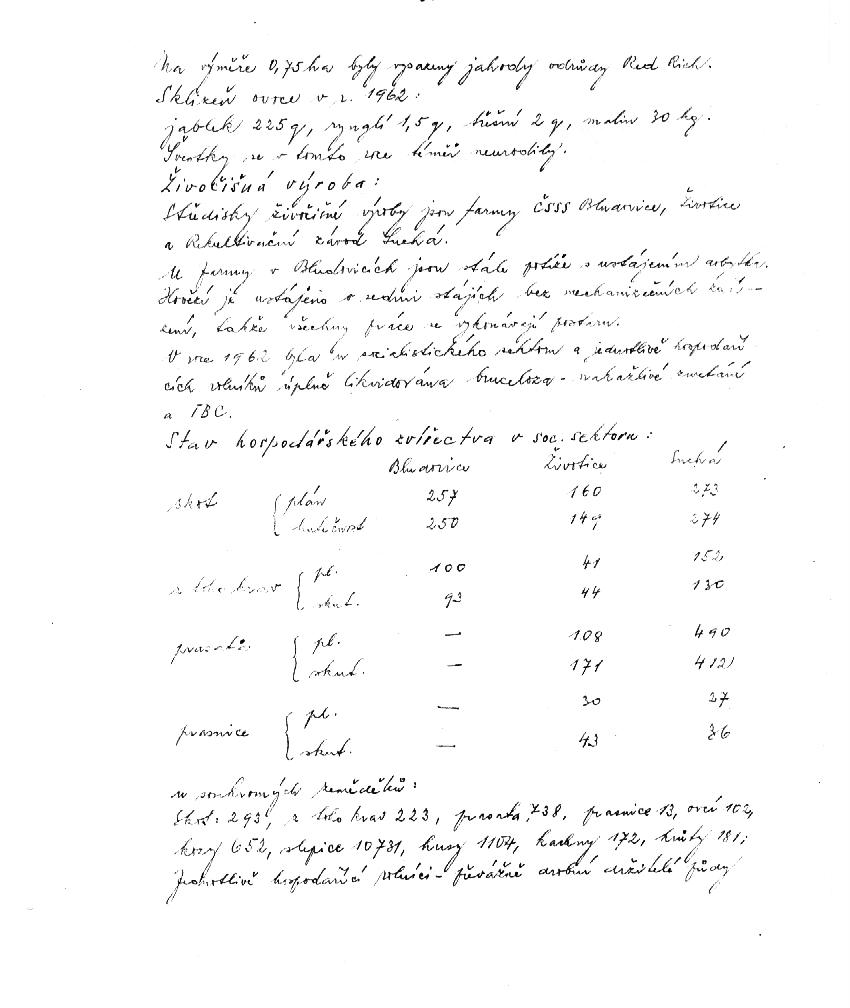 Na výměře 0,75 ha byly vysazeny jahody odrůdy Red Rich.
Sklizeň ovoce v r. 1962:
jablek 225 q, rynglí 1,5 q, třešní 2 q, malin 30 kg.
Švestky se v tomto roce téměř neurodily.
Živočišná výroba:
Středisky živočišné výroby jsou farmy ČSSS Bludovice, Životice
a Rekultivační závod Suchá.
U farmy v Bludovicích jsou stále potíže s ustájením dobytka.
Hovězí je ustájeno v sedmi stájích bez mechanizačních zaří-
zení, takže všechny práce se vykonávají postaru.
V roce 1962 byla u socialistického sektoru a jednotlivě hospodaří
cích rolníků úplně likvidována bruceloza - nakažlivé zmetání
a TBC.
Stav hospodářského zvířectva v soc. sektoru:
Bludovice Životice Suchá
skot plán 257 160 273
skutečnost 250 149 274
z toho krav pl. 100 41 152
skut. 93 44 130
prasata pl. — 108 490
skut. — 171 412
prasnice pl. — 30 27
skut. — 43 36
u soukromých zemědělců:
Skot: 293, z toho krav 223, prasata 738, prasnice 13, ovcí 102,
kozy 652, slepice 10731, husy 1104, kachny 172, krůty 181;
Jednotlivě hospodařící rolníci - převážně drobní držitelé půdy